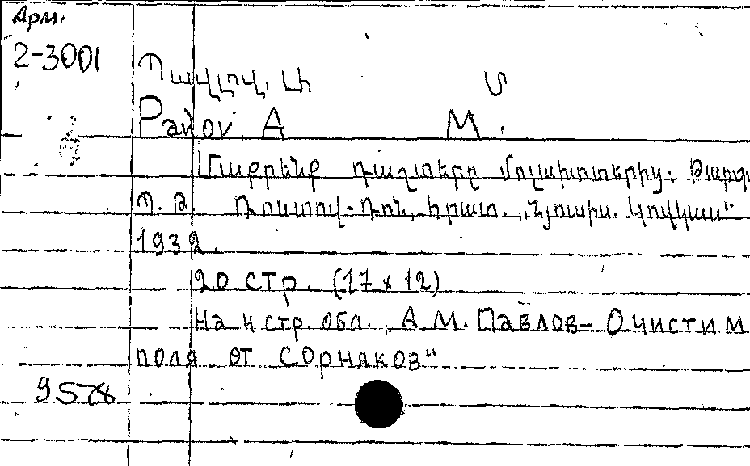 Арм.
2-3001
Պավլով, Ա Մ
Pavlov A M.
Մաքրենք դաշտերը մոլախոտերից. Թարգ.
Պ. Զ. Դոստով-Դոն, հրատ. „Հյուսիս. Կովկաս“
1932.
20 стр. (17 x 12)
На 4 стр. обл. „А. М. Павлов – Очистим
поля от сорняков“
9578